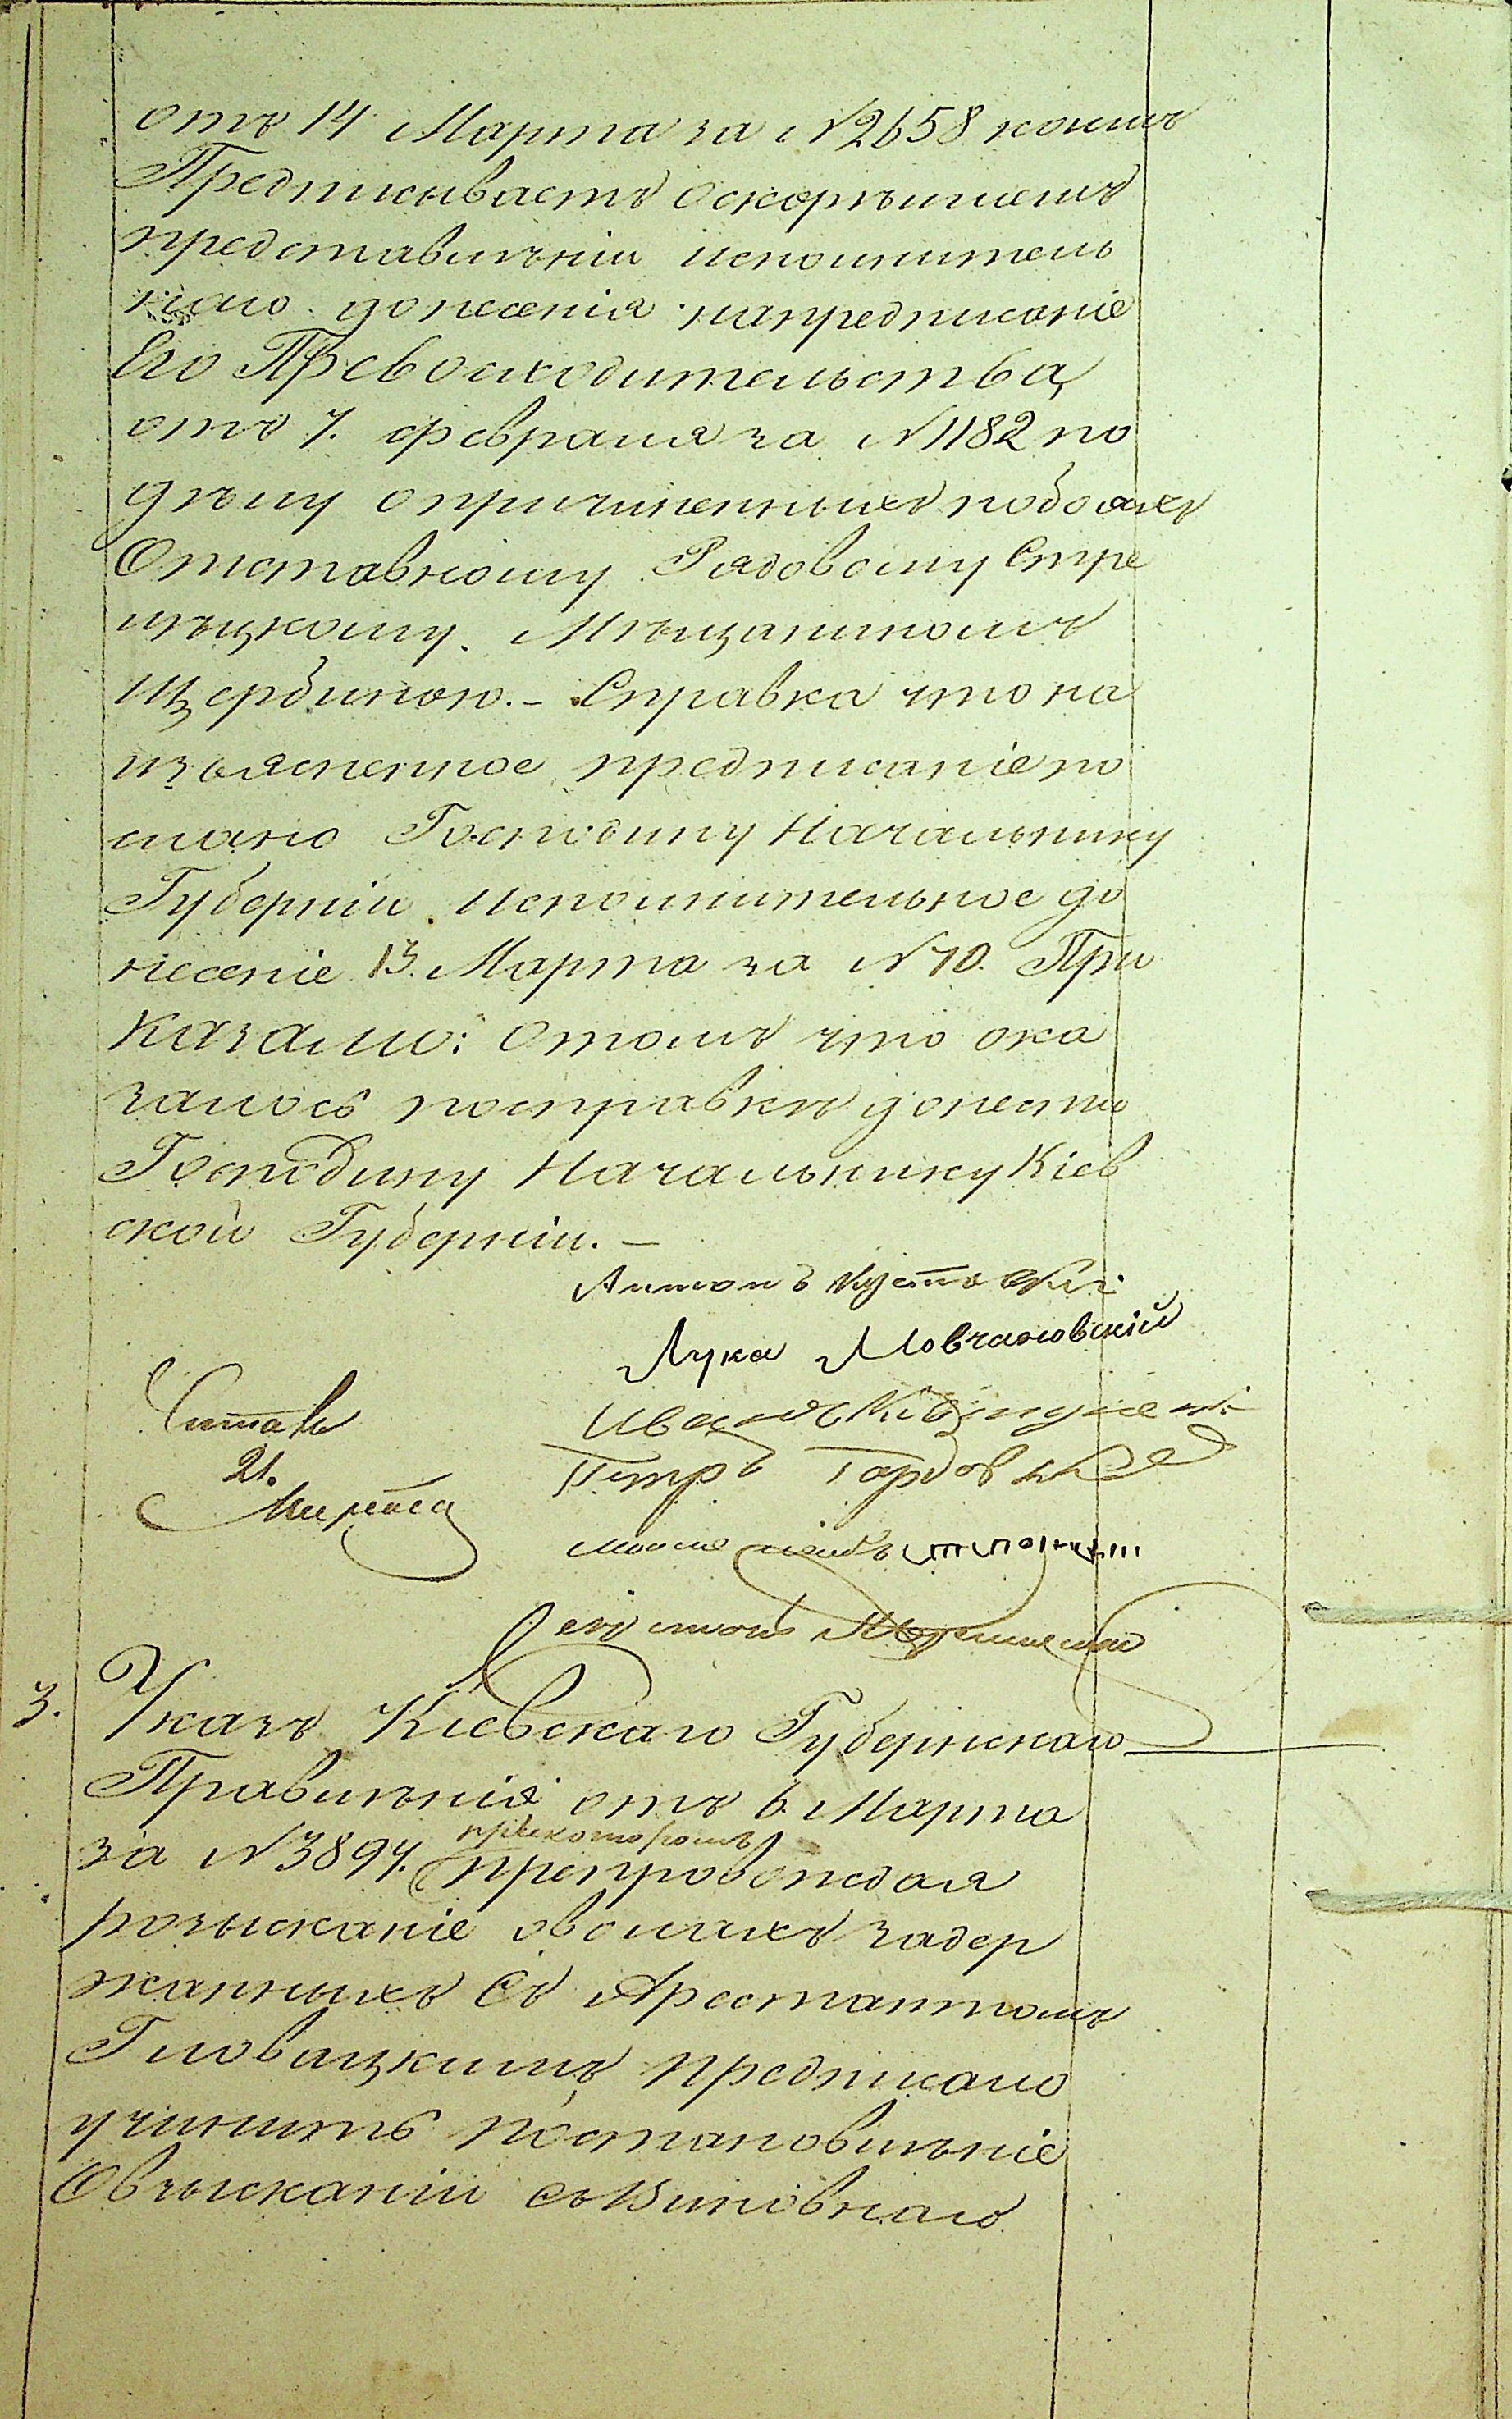 отъ 14 Марта за №2658 коимъ
Предписываетъ оскорѣйшемъ
представленіи исполнитель
наго донесенія напредписаніе
Его Превосходительства
отъ 7. февраля за №1182 по
дѣлу опричиненныхъ побояхъ
Отставному Рядовому Стре
лѣцкому. Мѣщаниномъ
Щербиною.- Справка что на
изъясненное предписаніе по
слано Господину Начальнику
Губерніи исполнительное до
несеніе 13. Марта за №70. При
казали: отомъ что ока
залось посправкѣ донести
Господину Начальнику Кіев
ской Губерніи.—
Антонъ
Лука Мовчановскій
Читалъ
Иванъ
21.
Петръ
Марта
3. Указъ Кіевскаго Губернскаго
Правленія отъ 6. Марта
прикоторомъ
за №3894. препровождая
розысканіе оволахъ задер
жанныхъ Съ Арестантомъ
Гловацкимъ предписано
учинить постановленіе
Овзысканіи съ Виновнаго